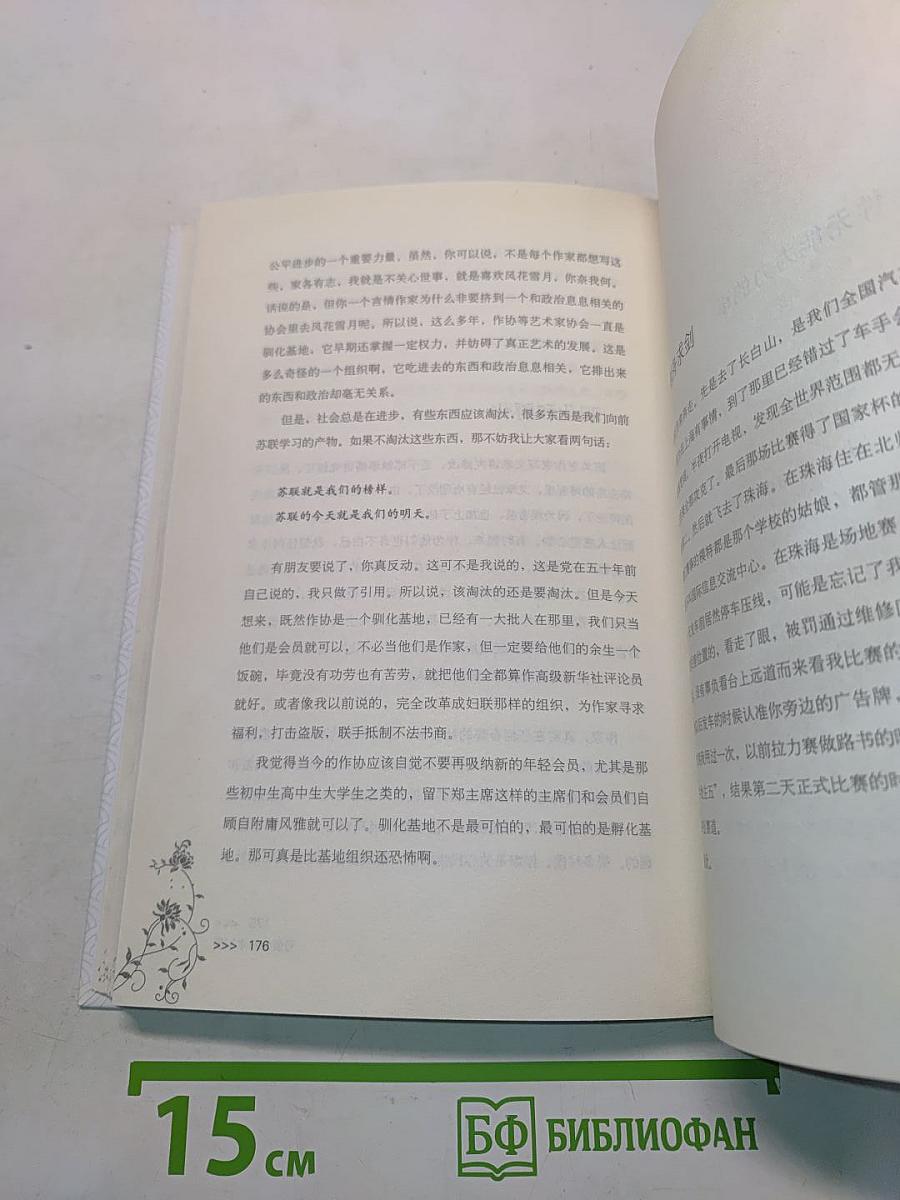 公平进步的一个重要力量，虽然，你可以说，不是每个作家都想写这
些，家各有志，我就是不关心世事，就是喜欢风花雪月，你奈我何。
话说的是，但你一个言情作家为什么非要挤到一个和政治息息相关的
协会里去风花雪月呢。所以说，这么多年，作协等艺术家协会一直是
驯化基地，它早期还掌握一定权力，并妨碍了真正艺术的发展。这是
多么奇怪的一个组织啊，它吃进去的东西和政治息息相关，它排出来
的东西和政治却毫无关系。
但是，社会总是在进步，有些东西应该淘汰，很多东西是我们向前
苏联学习的产物。如果不淘汰这些东西，那不妨我让大家看两句话：
苏联就是我们的榜样。
苏联的今天就是我们的明天。
有朋友要说了，你真反动。这可不是我说的，这是党在五十年前
自己说的，我只做了引用。所以说，该淘汰的还是要淘汰。但是今天
想来，既然作协是一个驯化基地，已经有一大批人在那里，我们只当
他们是会员就可以，不必当他们是作家，但一定要给他们的余生一个
饭碗，毕竟没有功劳也有苦劳，就把他们全都算作高级新华社评论员
就好。或者像我以前说的，完全改革成妇联那样的组织，为作家寻求
福利，打击盗版，联手抵制不法书商。
我觉得当今的作协应该自觉不要再吸纳新的年轻会员，尤其是那
些初中生高中生大学生之类的，留下郑主席这样的主席们和会员们自
顾自附庸风雅就可以了。驯化基地不是最可怕的，最可怕的是孵化基
地。那可真是比基地组织还恐怖啊。
>>> 176
求剑
先是去了长白山，是我们全国汽
上海有事情，到了那里已经错过了车手会
半夜打开电视，发现全世界范围都无
最后那场比赛得了国家杯的
然后就飞去了珠海。在珠海住在北师
模特都是那个学校的姑娘，都管那
国际信息交流中心。在珠海是场地赛
发车前居然停车压线，可能是忘记了我
位置的，看走了眼，被罚通过维修
事负看台上远道而来看我比赛的
发车的时候认准你旁边的广告牌，
用过一次，以前拉力赛做路书的时
左五”，结果第二天正式比赛的时
赛道。
15 см
БФ БИБЛИОФАН